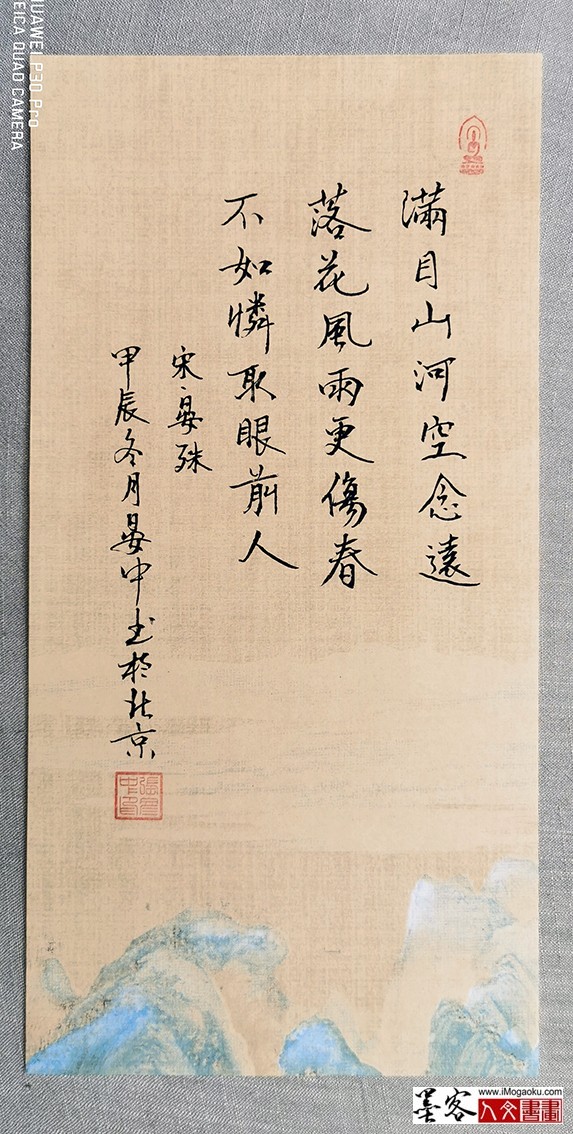 滿目山河空念遠
落花風雨更傷春
不如憐取眼前人
宋·晏殊
甲辰冬月晏中书於北京
HUAWEI P30 Pro
LEICA QUAD CAMERA
www.iMogaoku.com
墨客
人文書畫